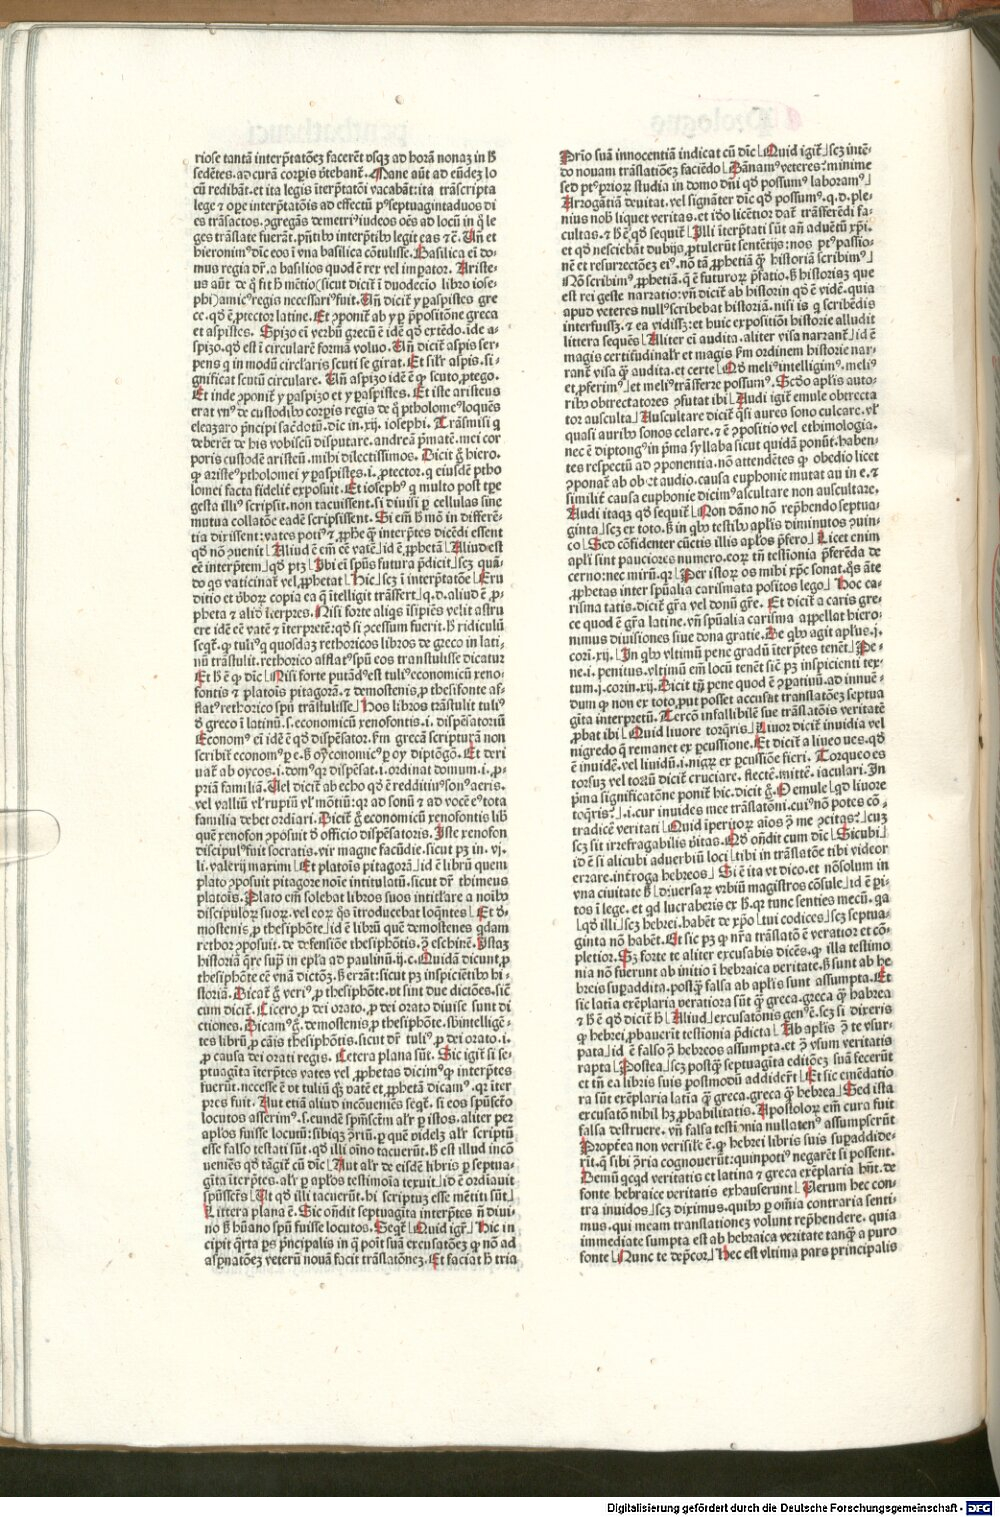 riose tantã interp̃tatõeʒ facerẽt vsqʒ ad horã nonaʒ in ħ
sedẽtes. ad curã corꝑis vtebant᷑. Mane aũt ad eũdeʒ lo
cũ redibãt. et ita legis ĩterp̃tatõi vacabãt: ita trãscripta
lege ⁊ ope interp̃tatõis ad effectũ ꝑ septuagintaduos di
es trãsactos. ꝯgregãs demetriꝰ iudeos oẽs ad locũ in q̃ le
ges trãslate fuerãt. p̃ntibꝰ interp̃tibꝰ legit eas ⁊c̃. Vñ et
hieronimꝰ dĩc eos ĩ vna basilica cõtulisse. Basilica eĩ do-
mus regia dr̃. a basilios quod ẽ rex vel impator. Ariste-
us aũt de q̃ fit ħ mẽtio (sicut dicit᷑ ĩ duodecio libro iose-
phi) amicꝰ regis necessariꝰ fuit. Vñ dicit᷑ yꝑaspistes gre
ce. qď ẽ ꝓtector latine. Et ꝯponit᷑ ab yꝑ p̃positiõne greca
et aspistes. Spizo eĩ verbũ grecũ ẽ idẽ qď extẽdo. ide a-
spizo. qď est ĩ circularẽ formã voluo. Vñ dicit᷑ aspis ser-
pens q in modũ circl̃aris scuti se girat. Et sil̃r aspis. si-
gnificat scutũ circulare. Vñ aspizo idẽ ẽ qď scuto ꝓtego.
Et inde ꝯponit᷑ yꝑaspizo et yꝑaspistes. Et iste aristeus
erat vnꝰ de custodibꝰ corꝑis regis de q̃ ptholomeꝰ loquẽs
eleazaro p̃ncipi sac̃dotũ. dic in .xij. iosephi. Trãsmisi q
deberẽt de his vobiscũ disputare. andreã p̃matẽ. mei cor
poris custodẽ aristeũ. mihi dilectissimos. Dicit g̃ hiero.
ꝙ aristeꝰ ptholomei yꝑaspistes .i. ꝓtector. q eiusdẽ ptho
lomei facta fidelit᷑ exposuit. Et iosephꝰ q multo post tp̃e
gesta illiꝰ scripsit. non tacuissent. si diuisi ꝑ cellulas sine
mutua collatõe eadẽ scripsissent. Si em̃ ħ mõ in differẽ-
tia dixissent: vates potiꝰ ⁊ ꝓphe q̃ interp̃tes dicẽdi essent
qď nõ ꝯuenit Aliud ẽ em̃ eẽ vatẽ id ẽ ꝓphetã Aliud est
eẽ interp̃tem qď ptʒ Ibi eĩ sp̃us futura p̃dicit scʒ quã-
do qs vaticinat᷑ vel ꝓphetat Hic scʒ ĩ interp̃tatõe Eru
ditio et v̓boꝝ copia ea q̃ itelligit trãsfert q.d. aliud ẽ ꝓ-
pheta ⁊ aliď ĩterp̃es. Nisi forte aliqs ĩsipiẽs velit astru
ere idẽ eẽ vatẽ ⁊ ĩterpretẽ: qď si ꝯcessum fuerit. ħ ridiculũ
seqt᷑. ꝙ tuliꝰ q quosdaʒ rethoricos libros de greco in lati-
nũ trãstulit. rethorico afflatꝰ spũ eos transtulisse dicatur
Et ħ ẽ qď dĩc Nisi forte putãdꝰ est tuliꝰ economicũ xeno-
fontis ⁊ platois pitagorã. ⁊ demostenis, ꝓ thesifonte af-
flatꝰ rethorico spũ trãstulisse Hos libros trãstulit tuliꝰ
ď greco ĩ latinũ. s. economicũ xenofontis .i. dispẽsatoriũ
Economꝰ eĩ idẽ ẽ qď dispẽsator. fm̃ grecã scripturã non
scribit᷑ economꝰ ꝑ e. ħ oyconomicꝰ ꝑ oy diptõgõ. Et deri
uat᷑ ab oycos .i. domꝰ qꝛ dispẽsat .i. ordinat domum .i. ꝓ-
priã familiã. Uel dicit᷑ ab echo qď ẽ redditiuꝰ sonꝰ aeris.
vel valliũ vl̃ rupiũ vl̃ mõtiũ: qꝛ ad sonũ ⁊ ad vocẽ eꝰ tota
familia debet ordiari. Dicit᷑ g̃ economicũ xenofontis lib̃
quẽ xenofon ꝯposuit ď officio dispẽsatoris. Iste xenofon
discipulꝰ fuit socratis. vir magne facũdie. sicut pʒ in .vj.
li. valerij maximi Et platois pitagorã id ẽ librũ quem
plato ꝯposuit pitagore noĩe intitulatũ. sicut dr̃ thimeus
platois. Plato em̃ solebat libros suos intitl̃are a noĩbꝰ
discipuloꝝ suoꝝ. vel eoꝝ q̃s ĩtroducebat loq̃ntes Et ď
mostenis ꝓ thesiphõte id ẽ librũ quẽ demostenes q̃dam
rethor ꝯposuit. de defensiõe thesiphõtis. ꝯ̃ eschinẽ. Istaʒ
historiã q̃re sup̃ in ep̃la ad paulinũ .ij.c. Quidã dicunt ꝓ
thesiphõte eẽ vnã dictõʒ. ħ errãt: sicut pʒ inspiciẽtibꝰ hi-
storiã. Dicat᷑ g̃ veriꝰ ꝓ thesiphõte. vt sint due dictiões. sic̃
cum dicit᷑. Cicero ꝓ dei orato. ꝓ dei orato diuise sunt di
ctiones. Dicamꝰ g̃. demostenis ꝓ thesiphõte. sbintellige-
tes librũ ꝓ cãis thesiphõtis. sicut dr̃ tuliꝰ ꝓ dei orato .i.
ꝓ causa dei orati regis. Cetera plana sũt. Sic igit᷑ si se-
ptuagita ĩterp̃tes vates vel ꝓphetas dicimꝰ ꝙ interp̃tes
fuerũt. necesse ẽ vt tuliũ qꝫ vatẽ et ꝓphetã dicamꝰ. qꝛ iter
pres fuit. Aut etiã aliud incõueniẽs seqt᷑. si eos spũscto
locutos asserimꝰ. s. eundẽ spm̃sctm̃ al̃r ꝑ istos. aliter per
aplos fuisse locutũ: sibiqʒ ꝯ̃riũ. ꝑ quẽ videlʒ al̃r scriptũ
esse falso testati sũt. qď illi oĩno tacuerũt. ħ est illud incõ
ueniẽs qď tãgit᷑ cũ dĩc Aut al̃r de eisdẽ libris ꝑ septua-
gita ĩterp̃tes. al̃r ꝑ aplos testimoĩa texuit id ẽ ordiauit
spũssc̃ts Ut qď illi tacuerũt. hi scriptuʒ esse mẽtiti sũt
Littera plana ẽ. Sic oñdit septuagita interp̃tes ñ diui-
no ħ hũano spũ fuisse locutos. Seqt᷑ Quid igr̃ Hic in
cipit q̃rta ps p̃ncipalis in q̃ poĩt suã excusatõeʒ ꝙ nõ ad
asp̃natõeʒ veterũ nouã facit trãslatõneʒ. Et faciat ħ tria
Prĩo suã innocentiã indicat cũ dĩc Quid igit᷑ scʒ intẽ-
do nouam trãslatiõeʒ faciẽdo Dãnamꝰ veteres? minime
sed ptꝰ prioꝝ studia in domo dñi qď possumꝰ laboramꝰ
Arrogãtiã deuitat. vel signãter dĩc qď possumꝰ. q.d. ple-
nius nob̃ liquet veritas. et iďo licẽtior dat᷑ trãsferẽdi fa-
cultas. ⁊ ħ ẽ qď sequit᷑ Illi ĩterp̃tati sũt añ aduẽtũ xp̃i.
et qď nesciebãt dubijs ꝓtulerũt sentẽtijs: nos ptꝰ passio-
nẽ et resurrectõeʒ eiꝰ. nõ tã ꝓphetiã q̃ historiã scribimꝰ
Nõ scribimꝰ ꝓphetiã. q̃ ẽ futuroꝝ p̃fatio. ħ historiaʒ que
est rei geste narratio: vñ dicit᷑ ab historin qď ẽ vide. quia
apud veteres nullꝰ scribebat historiã. nisi is q scribẽdis
interfuissʒ. ⁊ ea vidissʒ: et huic expositiõi historie alludit
littera sequẽs Aliter eĩ audita. aliter visa narrant᷑ id ẽ
magis certifudinal̃r et magis fm̃ ordinem historie nar-
rant᷑ visa q̃ audita. et certe Qď meliꝰ intelligimꝰ. meliꝰ
et ꝓferimꝰ et meliꝰ trãsferre possumꝰ. Scďo aplis auto-
ribꝰ obtrectatores ꝯfutat ibi Audi igit᷑ emule obtrecta
tor ausculta Auscultare dicit᷑ q̃si aures sono culcare. vl̃
quasi auribꝰ sonos celare. ⁊ ẽ ꝯpositio vel ethimologia.
nec ẽ diptongꝰ in p̃ma syllaba sicut quidã ponũt. haben-
tes respectũ ad ꝯponentia. nõ attendẽtes ꝙ obedio licet
ꝯponat᷑ ab ob et audio. causa euphonie mutat au in e. ⁊
similit᷑ causa euphonie dicimꝰ ascultare non auscultare.
Audi itaqʒ qď sequit᷑ Non dãno nõ rep̃hendo septua-
ginta scʒ ex toto. ħ in qbꝰ testibꝰ aplis diminutos ꝯuin-
co Sed cõfidenter cũctis illis aplos p̃fero Licet enim
apli sint pauciores numero. eoꝝ tñ testĩonia p̃ferẽda de
cerno: nec mirũ. qꝛ Per istoꝝ os mihi xp̃c sonat. q̃s ãte
ꝓphetas inter spũalia carismata positos lego Hoc ca-
risma tatis. dicit᷑ gr̃a vel donũ gr̃e. Et dicit᷑ a caris gre-
ce quod ẽ gr̃a latine. vñ spũalia carisma appellat hiero-
nimus diuisiones siue dona gratie. De qbꝰ agit aplus .j.
cori. xij. In qbꝰ vltimũ pene gradũ ĩterp̃tes tenẽt Pe-
ne .i. penitus. vltimũ em̃ locũ tenẽt sic̃ pʒ inspicienti tex-
tum .j. corin. xij. Dicit tñ pene quod ẽ ꝯparatiuũ. ad innuẽ-
dum ꝙ non ex toto. put posset accusat᷑ translatõeʒ septua
gita interpretũ. Tercõ infallibilẽ sue trãslatõis veritatẽ
ꝓbat ibi Quid liuore torq̃ris Liuor dicit᷑ inuidia vel
nigredo q̃ remanet ex ꝑcussione. Et dicit᷑ a liueo ues. qď
ẽ inuidẽ. vel liuidũ .i. nigꝝ ex ꝑcussiõe fieri. Torqueo es
torsuʒ vel tortũ dicit᷑ cruciare. flectẽ. mittẽ. iaculari. In
p̃ma significatõne ponit᷑ hic. dicit g̃. O emule qď liuore
toq̃ris? .i. cur inuides mee trãslatõni. cuiꝰ nõ potes cõ-
tradicẽ veritati Quid ĩperitoꝝ aĩos ꝯ̃ me ꝯcitas? cuʒ
scʒ sit irrefragabilis v̓itas. Qď oñdit cum dĩc Sicubi
id ẽ si alicubi aduerbiũ loci tibi in trãslatõe tibi videor
errare. int̃roga hebreos Si ẽ ita vt dico. et nõ solum in
vna ciuitate ħ diuersaꝝ vrbiũ magistros cõsule id ẽ ꝑi-
tos ĩ lege. et qd lucraberis ex ħ. qꝛ tunc senties mecũ. qa
qď illi scʒ hebrei. habẽt de xp̃o tui codices scʒ septua-
ginta nõ habẽt. Et sic pʒ ꝙ nr̃a trãslatõ ẽ veratior et cõ-
pletior. Sʒ forte te aliter excusabis dicẽs. ꝙ illa testimo
nia nõ fuerunt ab initio ĩ hebraica veritate. ħ sunt ab he
breis suꝑaddita. postq̃ falsa ab aplis sunt assumpta. Et
sic latia exẽplaria veratiora sũt q̃ greca. greca q̃ habrea
⁊ ħ ẽ qď dicit᷑ ħ Aliud excusatõnis genꝰ ẽ. scʒ si dixeris
ꝙ hebrei ꝓbauerit testĩonia p̃dicta Ab aplis ꝯ̃ te vsur-
pata id ẽ falso ꝯ̃ hebreos assumpta. et ꝯ̃ vsum veritatis
rapta Postea scʒ postq̃ septuagita editiõeʒ suã fecerũt
et tñ ea libris suis postmodũ addider̃t Et sic emẽdatio
ra sũt exẽplaria latĩa q̃ greca. greca q̃ hebrea Sed ista
excusatõ nihil hʒ ꝓbabilitatis. Apostoloꝝ em̃ cura fuit
falsa destruere. vñ falsa testĩonia nullatenꝰ assumpserũt
Propt̃ea non verisil̃e ẽ. ꝙ hebrei libris suis suꝑaddide-
rit. q̃ sibi ꝯ̃ria cognouerũt: quinpotiꝰ negarẽt si possent.
Demũ qcqd veritatis et latina ⁊ greca exẽplaria hñt. de
fonte hebraice veritatis exhauserunt Verum hec con-
tra inuidos scʒ diximus. quibꝰ ꝑ om̃ia contraria senti-
mus. qui meam translationeʒ volunt rep̃hendere. quia
immediate sumpta est ab hebraica veritate tanq̃ a puro
fonte Nunc te dep̃cor Hec est vltima pars principalis
Digitalisierung gefördert durch die Deutsche Forschungsgemeinschaft - DFG